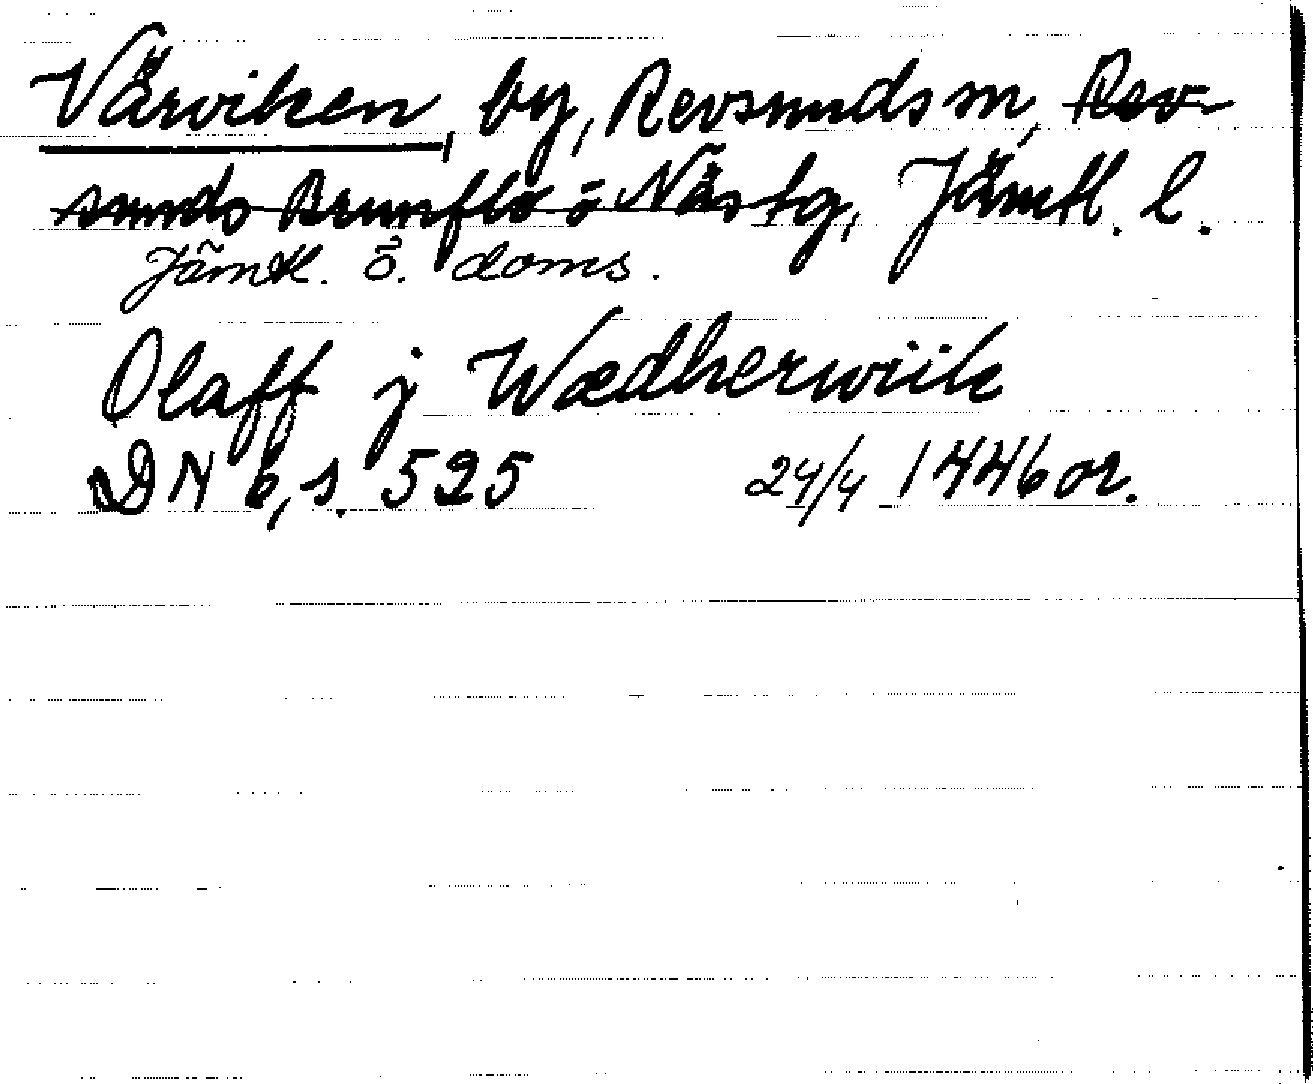 Värviken, by, Revsunds sn, Rev-
sunds Brunflo o Näs tg, Jämtl. l.
Jämtl. ö. doms.
Olaff j Wædherwiik
DN 6, s. 525 24/4 1446 or.